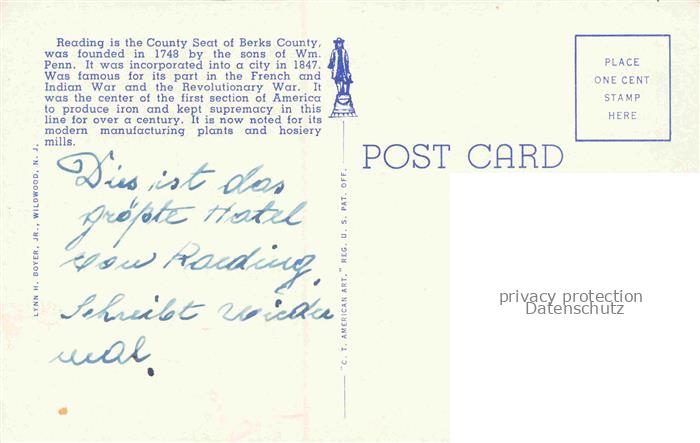 Reading is the County Seat of Berks County,
was founded in 1748 by the sons of Wm.
Penn. It was incorporated into a city in 1847.
Was famous for its part in the French and
Indian War and the Revolutionary War. It
was the center of the first section of America
to produce iron and kept supremacy in this
line for over a century. It is now noted for its
modern manufacturing plants and hosiery
mills.
Dies ist das
größte Hotel
von Raeding.
Schreibt wieder
mal.
LYNN H. BOYER, JR., WILDWOOD, N. J.
"C. T. AMERICAN ART," REG. U. S. PAT. OFF.
POST CARD
PLACE
ONE CENT
STAMP
HERE
privacy protection
Datenschutz